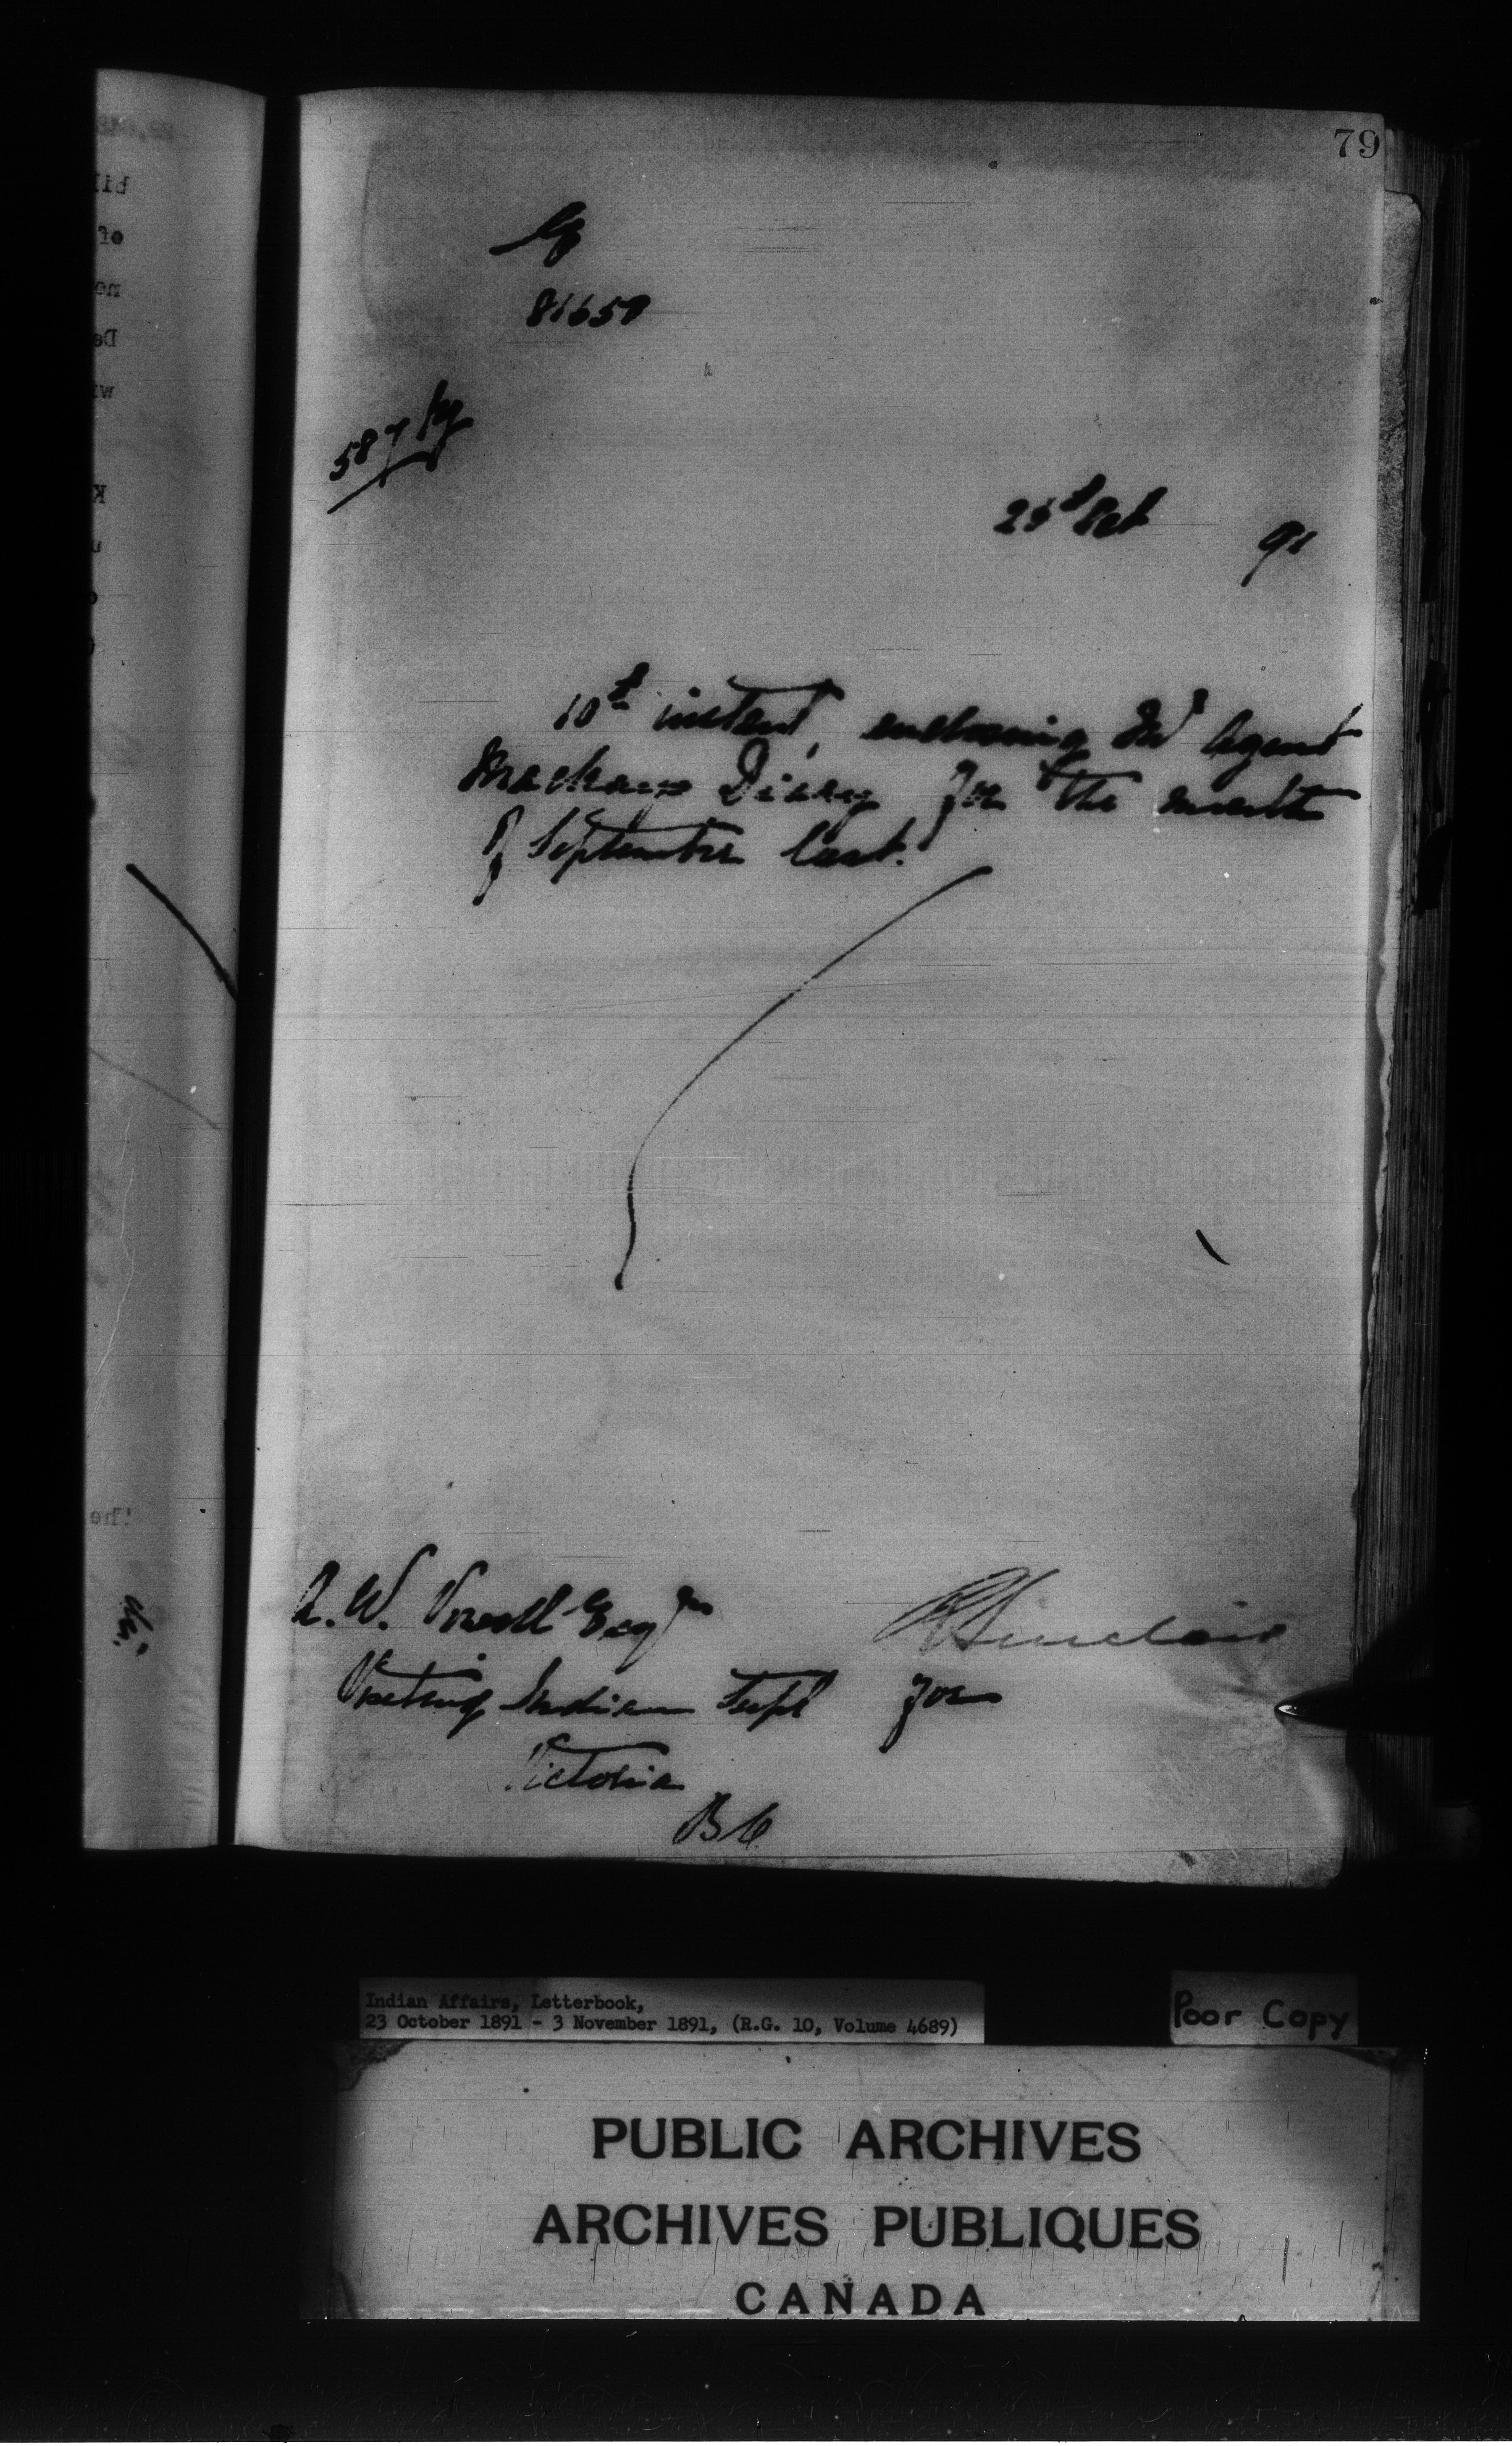 79
81650
587
Oct 91
10th instant, enclosing Ind Agent
Mackays Diary for the month
of September last.
A. W. Vowell Esqre
Sinclair
Visiting Indian Supt for
Victoria
BC
Indian Affairs, Letterbook,
23 October 1891 - 3 November 1891, (R.G. 10, Volume 4689)
Poor Copy
PUBLIC ARCHIVES
ARCHIVES PUBLIQUES
CANADA